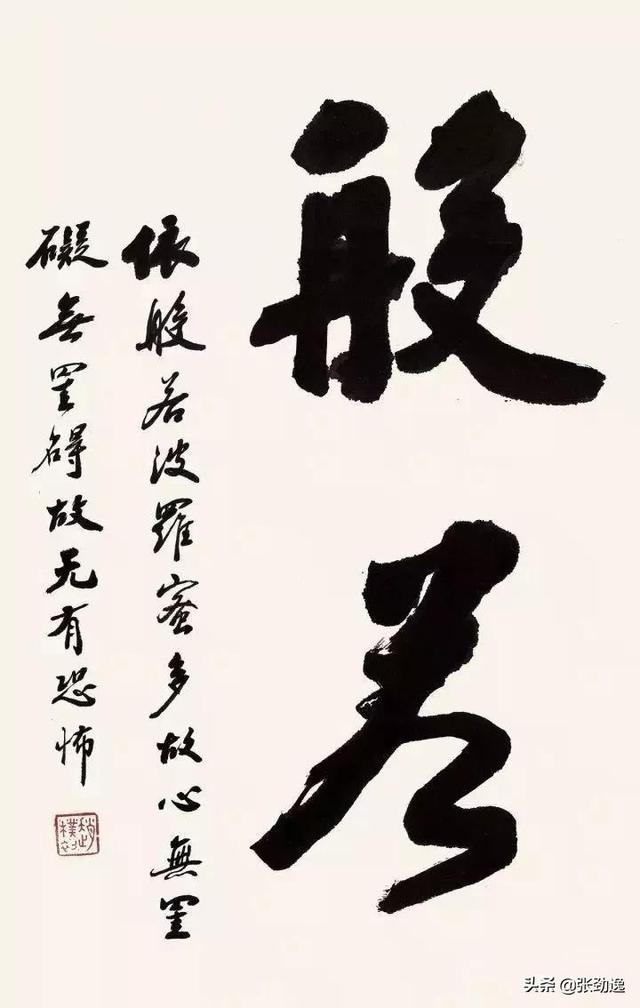 般若
依般若波羅蜜多故心無罣
礙無罣碍故无有恐怖
趙樸初
头条 @张劲逸